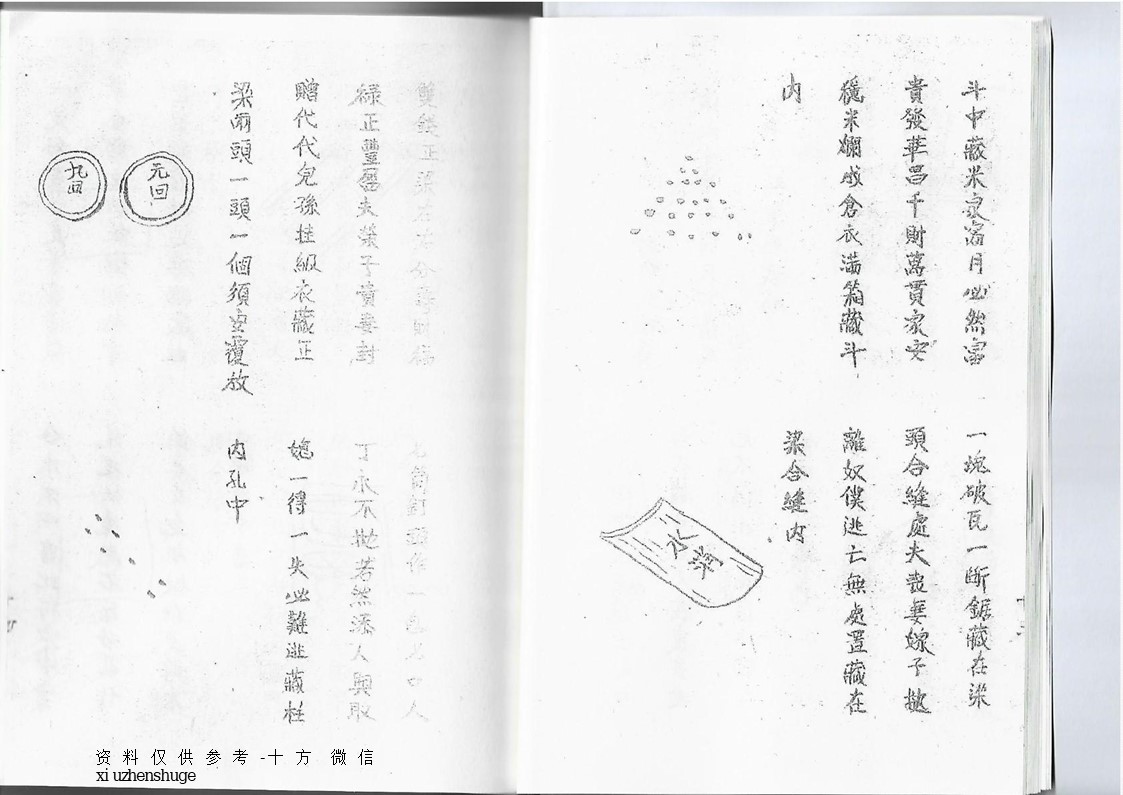 斗中藏米家富月必然富
貴發華昌千財萬貫家安
穩米爛成倉衣滿箱藏斗
内
一塊破瓦一斷鋸藏在梁
頭合縫處夫喪妻嫁子拋
離奴僕逃亡無處置藏在
梁合縫内
氷消
雙錢正梁左右分壽財福
祿正豐盈夫榮子貴妻封
贈代代兒孫挂級衣藏正
梁兩頭一頭一個須要覆放
元回
九回
釘頭作一包口人
丁永不拋若然添人與取
媳一得一失必難逃藏柱
内孔中
资料仅供参考-十方 微信
xiuzhenshuge